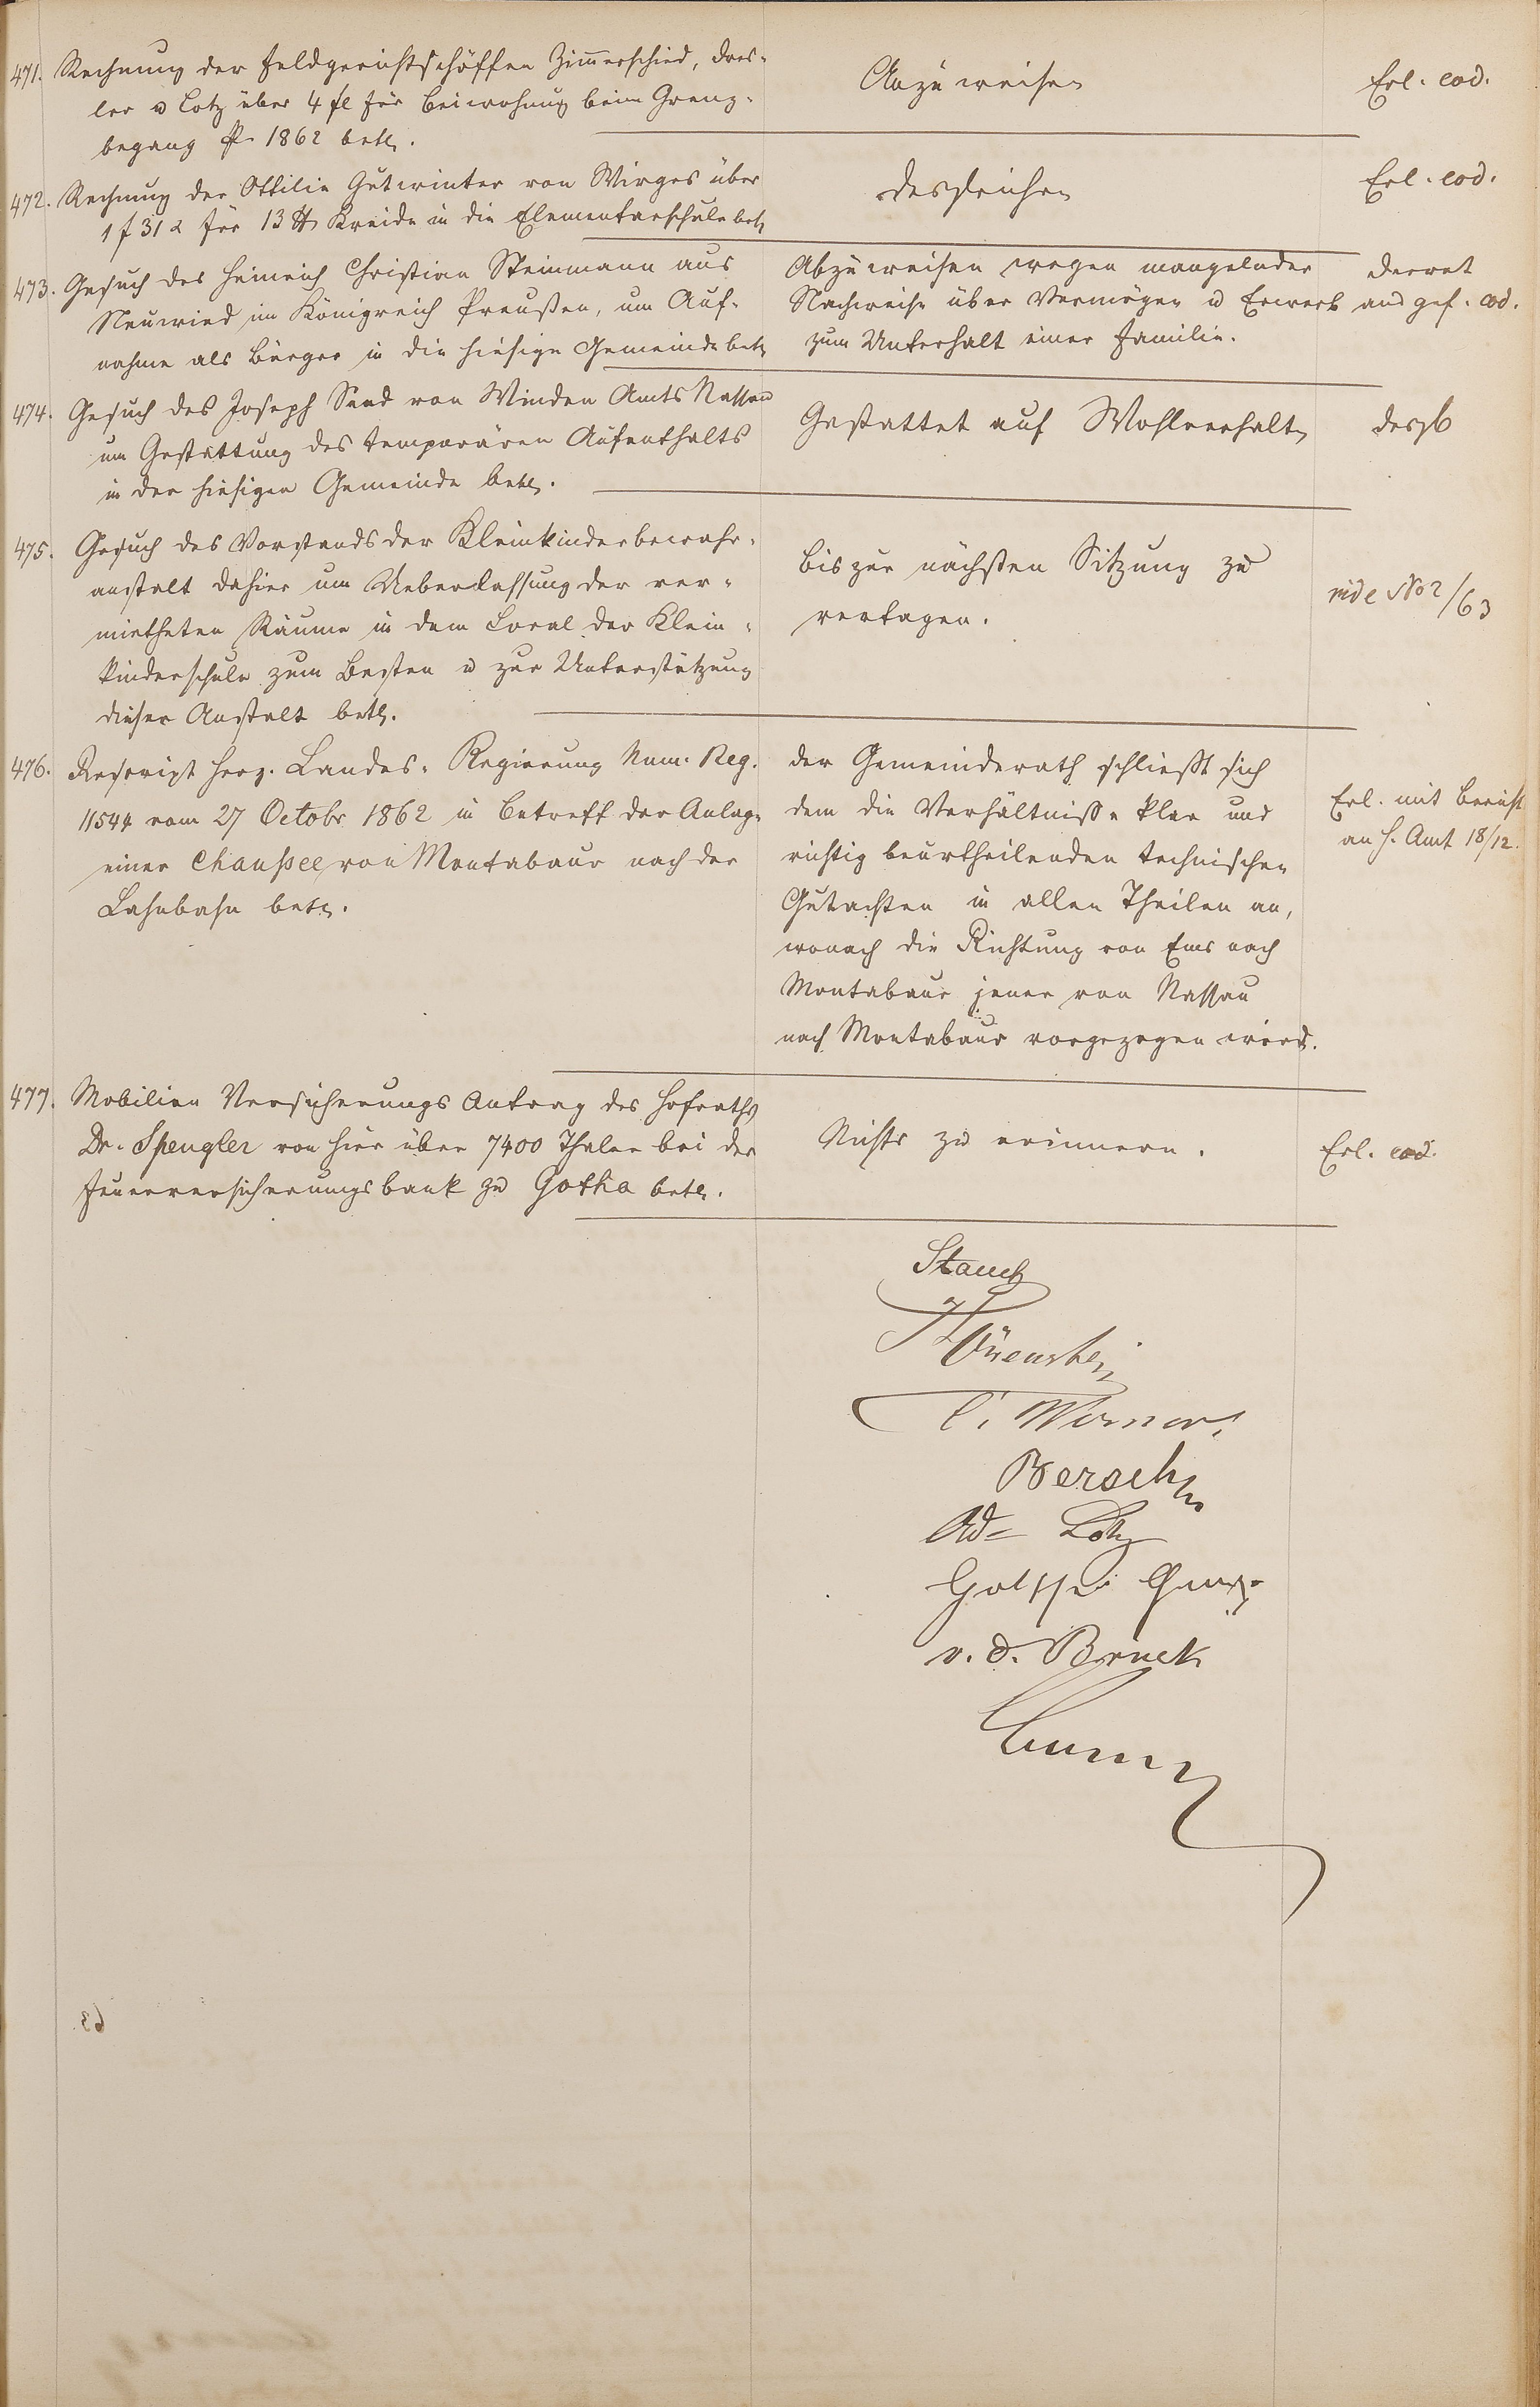 471. Rechnung der Feldgerichtschöffen Zimmerschied, Dros-
ler u Lotz über 4 fl für Beiwohnung beim Grenz-
begang pr 1862 betr.
Anzuweisen
Erl. eod.
472. Rechnung der Ottilie Gutwinter von Wirges über
1 f 31 x für 13 ℔ Kreide in die Elementarschule betr
desgleichen
Erl. eod.
473. Gesuch des Heinrich Christian Steinmann aus
Neuwied im Königreich Preußen, um Auf-
nahme als Bürger in die hiesige Gemeinde betr
Abzuweisen wegen mangelnder
Nachweise über Vermögen u Erwerb
zum Unterhalt einer Familie.
Decret
ausgef. eod.
474. Gesuch des Joseph Sand von Winden Amts Nassau
um Gestattung des temporären Aufenthalts
in der hiesigen Gemeinde betr.
Gestattet auf Wohlverhalten
desgl
475. Gesuch des Vorstands der Kleinkinderbewahr-
anstalt dahier um Ueberlassung der ver-
mietheten Räume in dem Local der Klein-
kinderschule zum Besten u zur Unterstützung
dieser Anstalt betr.
bis zur nächsten Sitzung zu
vertagen.
vide No 2/63
476. Rescript Herz. Landes-Regierung Num. Reg.
11544 vom 27 Octobr 1862 in Betreff der Anlage
einer Chaussee von Montabaur nach der
Lahnbahn betr.
der Gemeinderath schließt sich
dem die Verhältnisse klar und
richtig beurtheilenden technischen
Gutachten in allen Theilen an,
wonach die Richtung von Ems nach
Montabaur jener von Nassau
nach Montabaur vorgezogen wird.
Erl. mit Bericht
an H. Amt 18/12.
477. Mobilien Versicherungs Antrag des Hofraths
Dr. Spengler von hier über 7400 Thaler bei der
Feuerversicherungsbank zu Gotha betr.
Nichts zu erinnern.
Erl. eod.
Stauch
C. Werner
Bersch
Ad. Lotz
v. d. Bruck
63